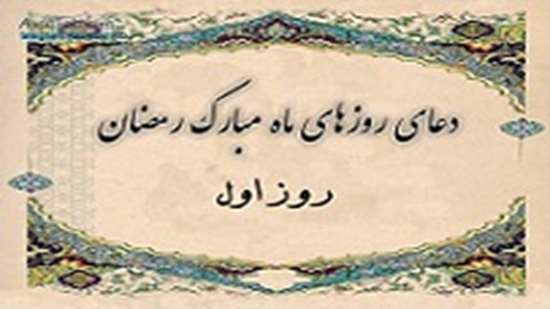 دعای روزهای ماه مبارک رمضان
روز اول